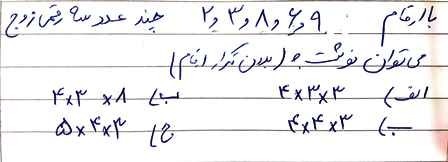 با ارقام ۹و۶و۸و۳و۲ چند عدد سه رقمی زوج
می توان نوشت؟ (بدون تکرار ارقام)
الف) ۴×۳×۳ ب) ۴×۳×۸
ب) ۴×۴×۳ ج) ۵×۴×۳